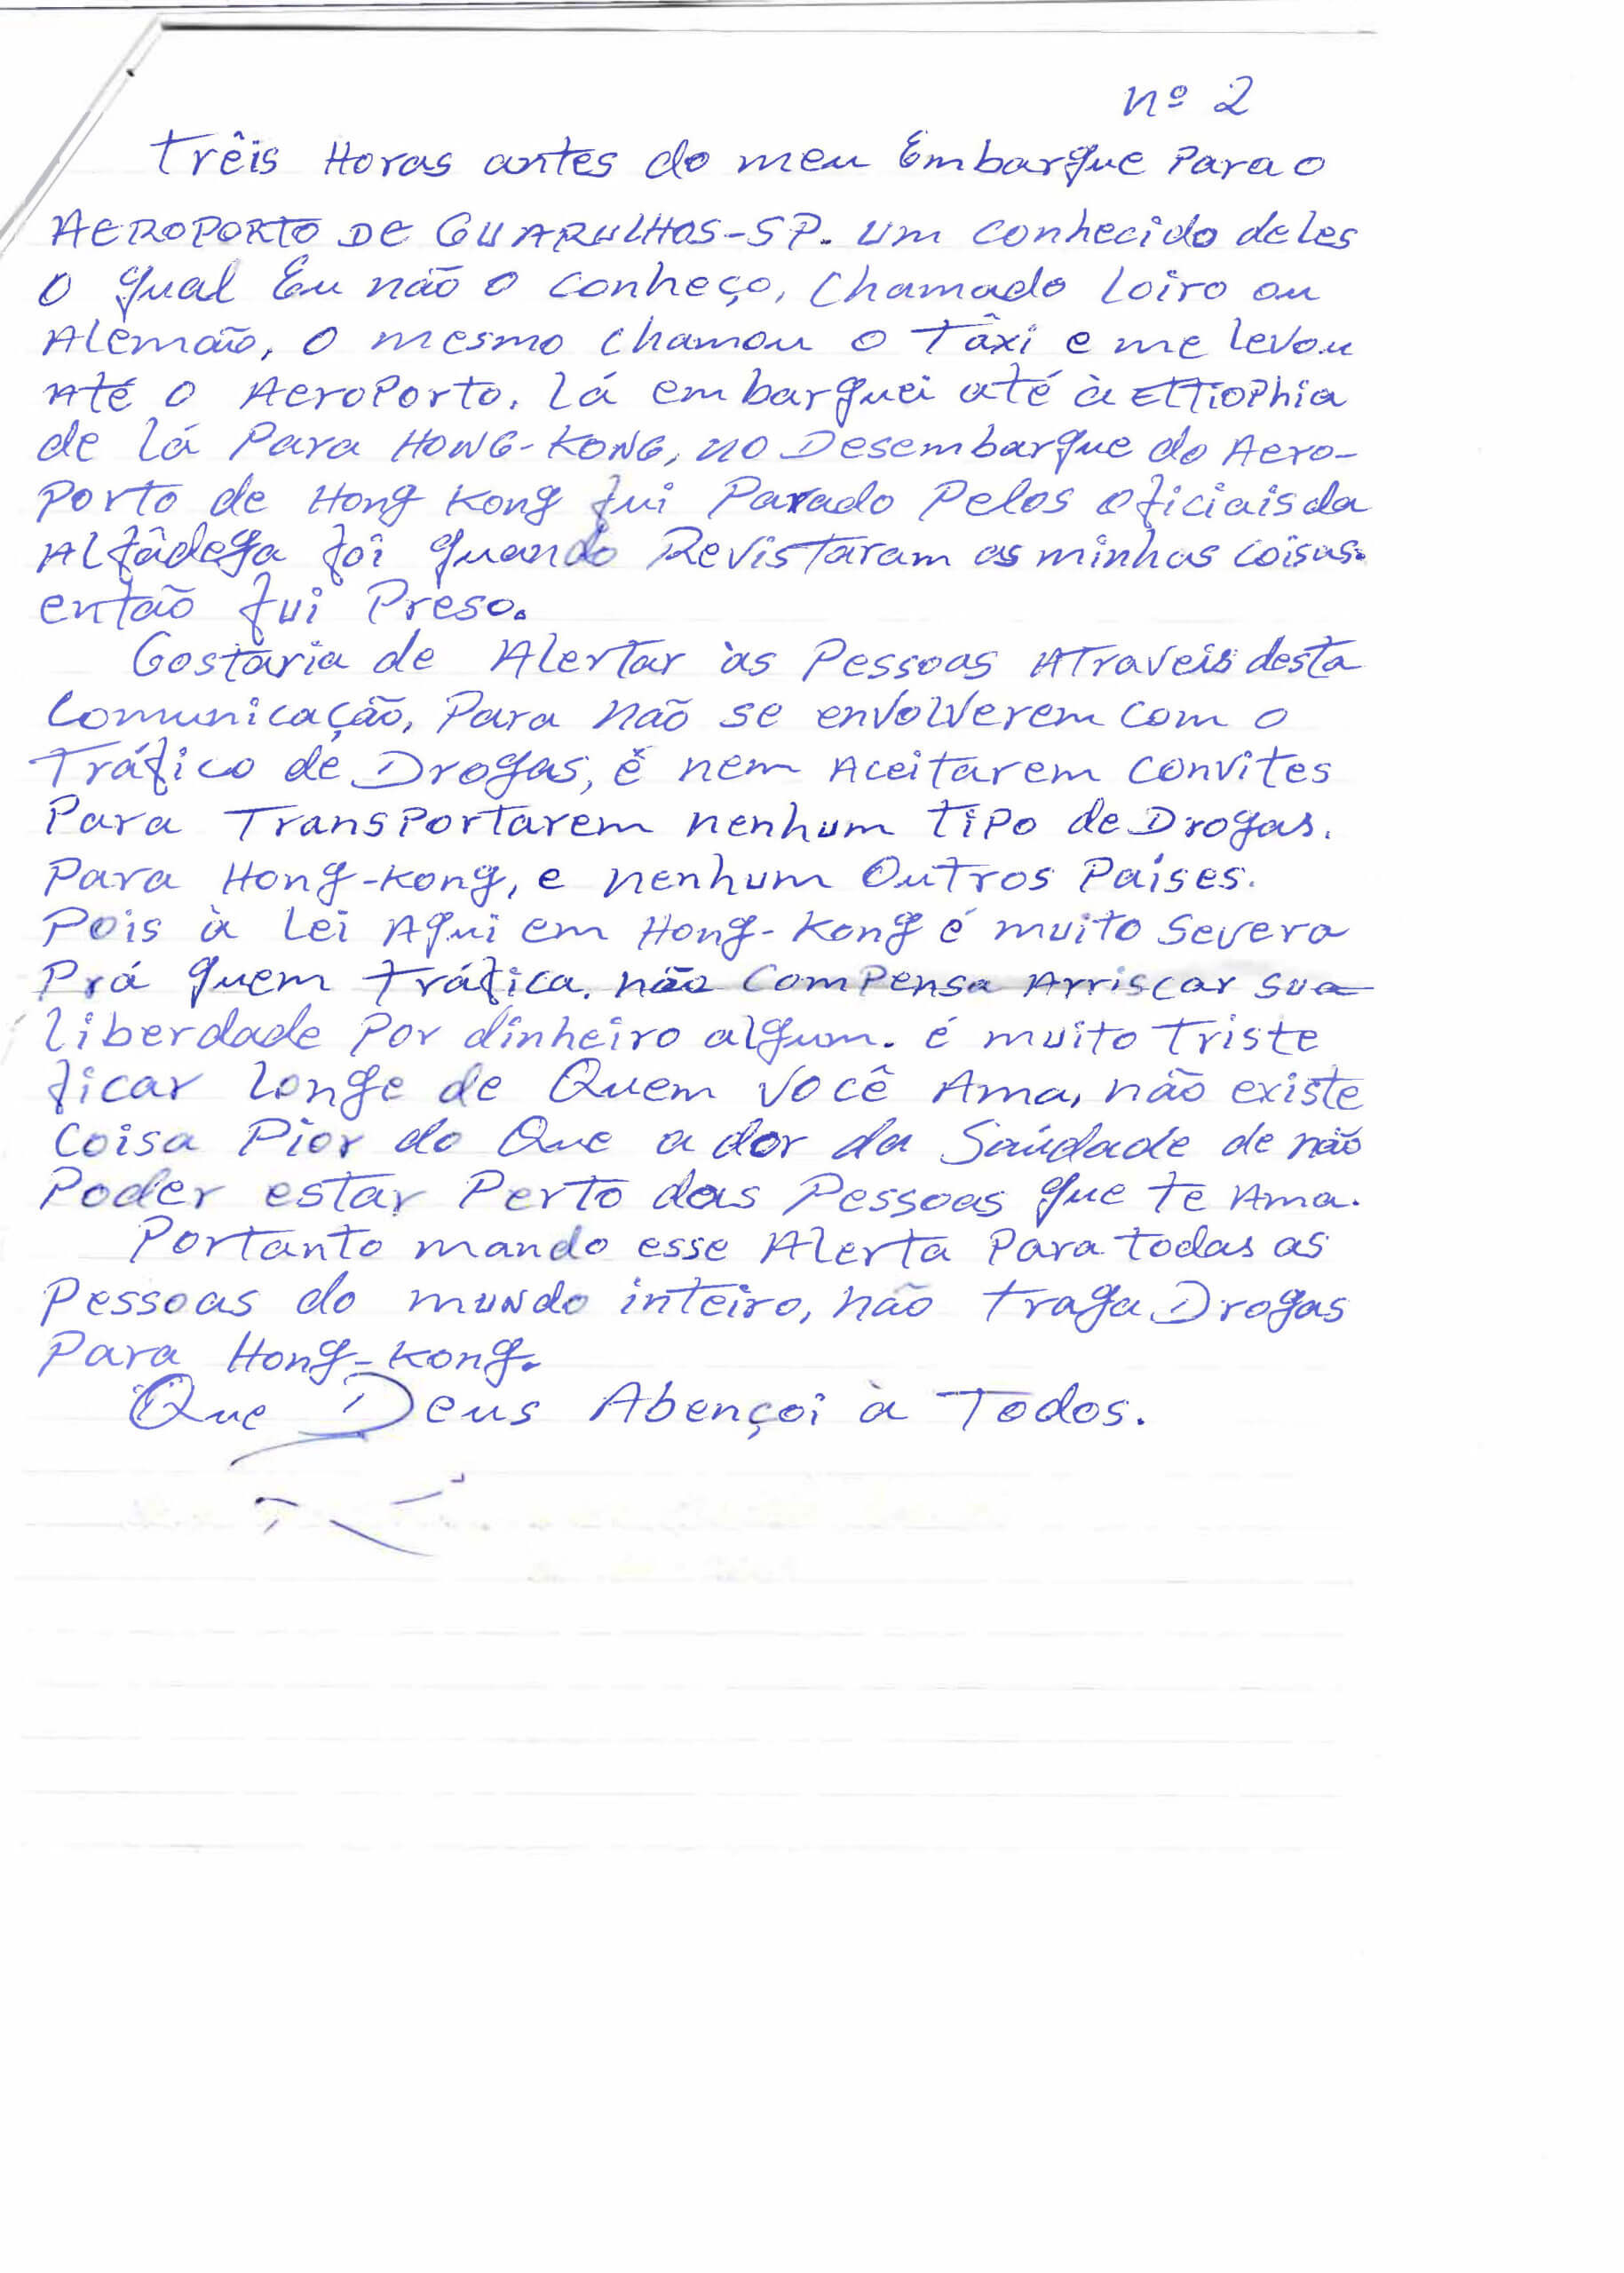 nº 2
Trêis Horas antes do meu Embarque Para o
AEROPORTO DE GUARULHOS-SP. um conhecido deles
O qual Eu não o conheço, chamado Loiro ou
Alemão, o mesmo chamou o Tâxi e me levou
Até o AeroPorto. Lá embarquei até à ETTioPhia
de Lá Para HONG-KONG, no Desembarque do Aero-
Porto de Hong Kong fui Parado Pelos oficiais da
Alfâdega foi quando Revistaram as minhas coisas.
então fui Preso.
Gostaria de Alertar às Pessoas Atraveis desta
Comunicação, Para não se envolverem com o
Tráfico de Drogas, é nem Aceitarem convites
Para TransPortarem nenhum tipo de Drogas.
Para Hong-Kong, e nenhum Outros Países.
Pois à Lei Aqui em Hong-Kong é muito severa
Prá quem Tráfica. não ComPensa Arriscar sua
Liberdade Por dinheiro algum. é muito Triste
ficar Longe de Quem você Ama, não existe
Coisa Pior do Que a dor da Saúdade de não
Poder estar Perto das Pessoas que te Ama.
Portanto mando esse Alerta Para todas as
Pessoas do mundo inteiro, não traga Drogas
Para Hong-Kong.
Que Deus Abençoi à Todos.